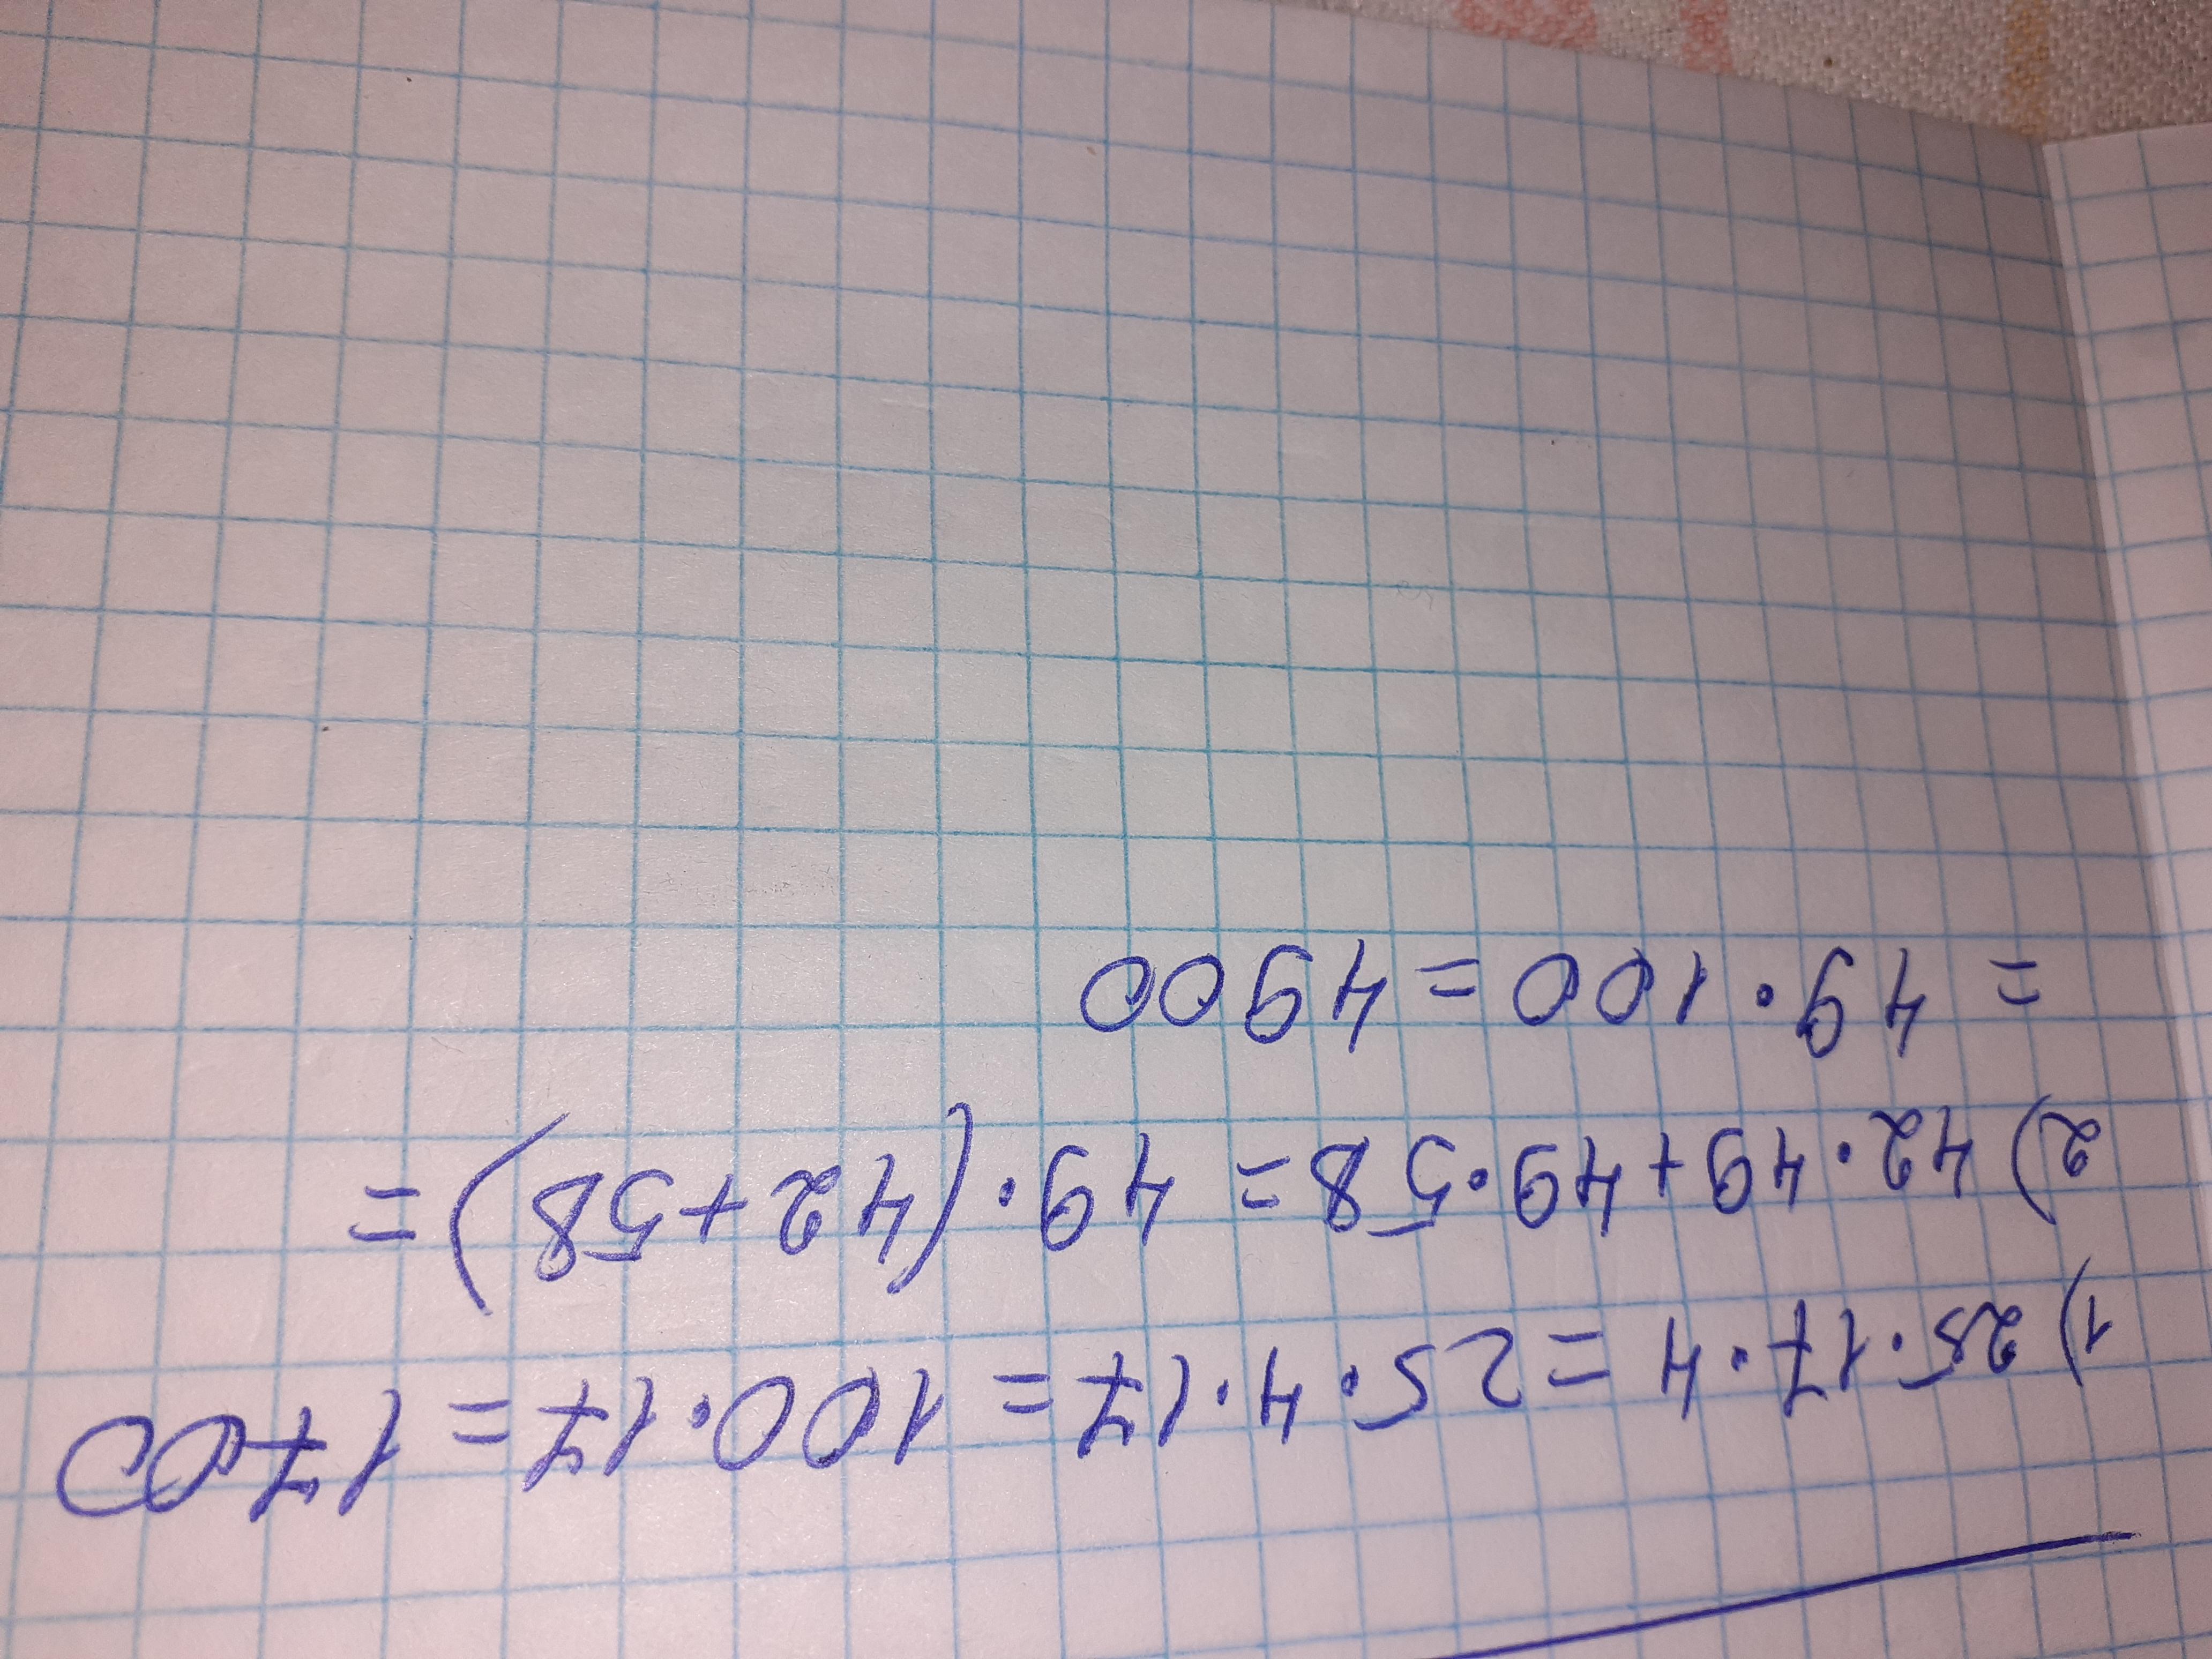 1) 25·17·4=25·4·17=100·17=1700
2) 42·49+49·58=49·(42+58)=
=49·100=4900